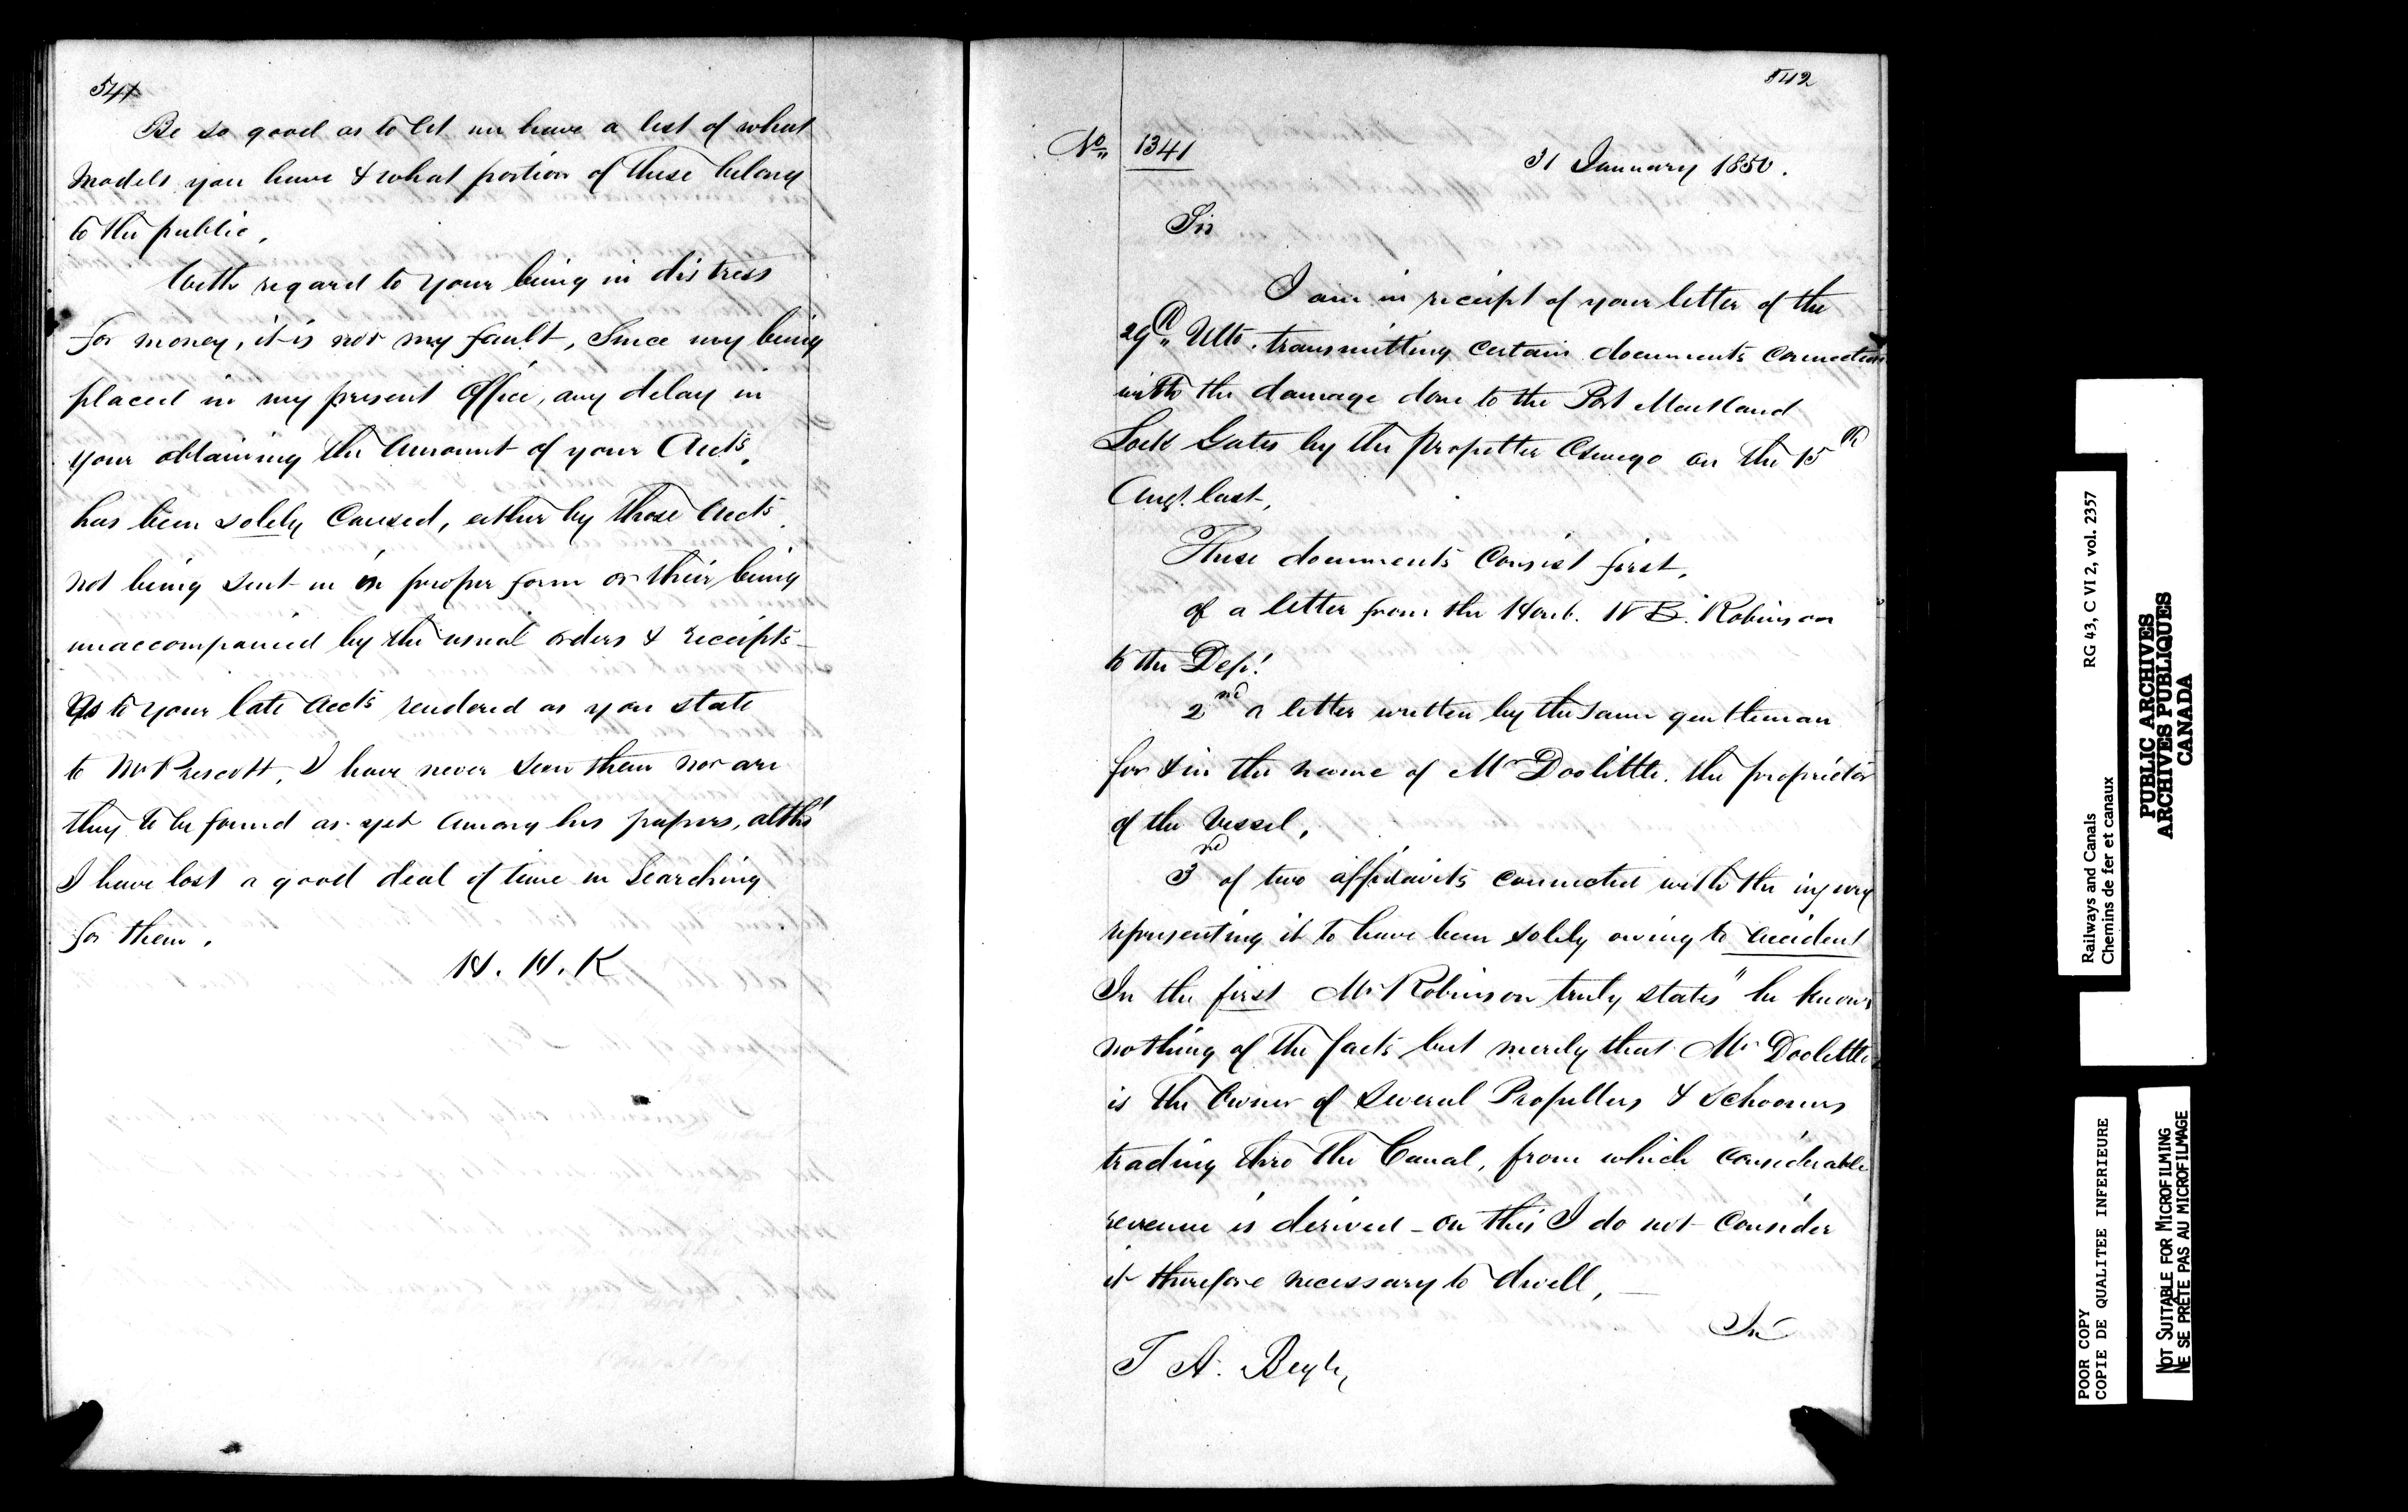 541
Be so good as to let me have a list of what
Models you have & what portion of these belong
to the public,
With regard to your being in distress
for money, it is not my fault, Since my being
placed in my present Office, any delay in
your obtaining the Amount of your Accts.
has been solely Caused, either by those Accts.
not being sent in in proper form or their being
unaccompanied by the usual orders & receipts_
As to your late Accts rendered as you state
to Mr Prescott, I have never seen them nor are
they to be found as yet among his papers, altho'
I have lost a good deal of time in Searching
for them.
H. H. K
542
No. 1341
31 January 1850.
Sir
I am in receipt of your letter of the
29th Ulto. transmitting Certain documents Connected
with the damage done to the Port Maitland
Lock Gates by the propeller Oswego on the 15th
Augt. last,
These documents Consist first,
of a letter from the Honb. W B. Robinson
to the Dept.
2nd a letter written by the same gentleman
for & in the name of Mr Doolittle. the proprietor
of the Vessel,
3rd of two affidavits connected with the injury
representing it to have been solely owing to accident
In the first Mr Robinson truly states "he knows
nothing of the facts but merely that Mr Doolittle
is the Owner of several Propellers & Schooners
trading thro the Canal, from which Considerable
revenue is derived - on this I do not Consider
it therefore necessary to dwell, _
In
T A. Begly,
Railways and Canals RG 43, C VI 2, vol. 2357
Chemins de fer et canaux
PUBLIC ARCHIVES
ARCHIVES PUBLIQUES
CANADA
POOR COPY
COPIE DE QUALITEE INFERIEURE
NOT SUITABLE FOR MICROFILMING
NE SE PRÊTE PAS AU MICROFILMAGE